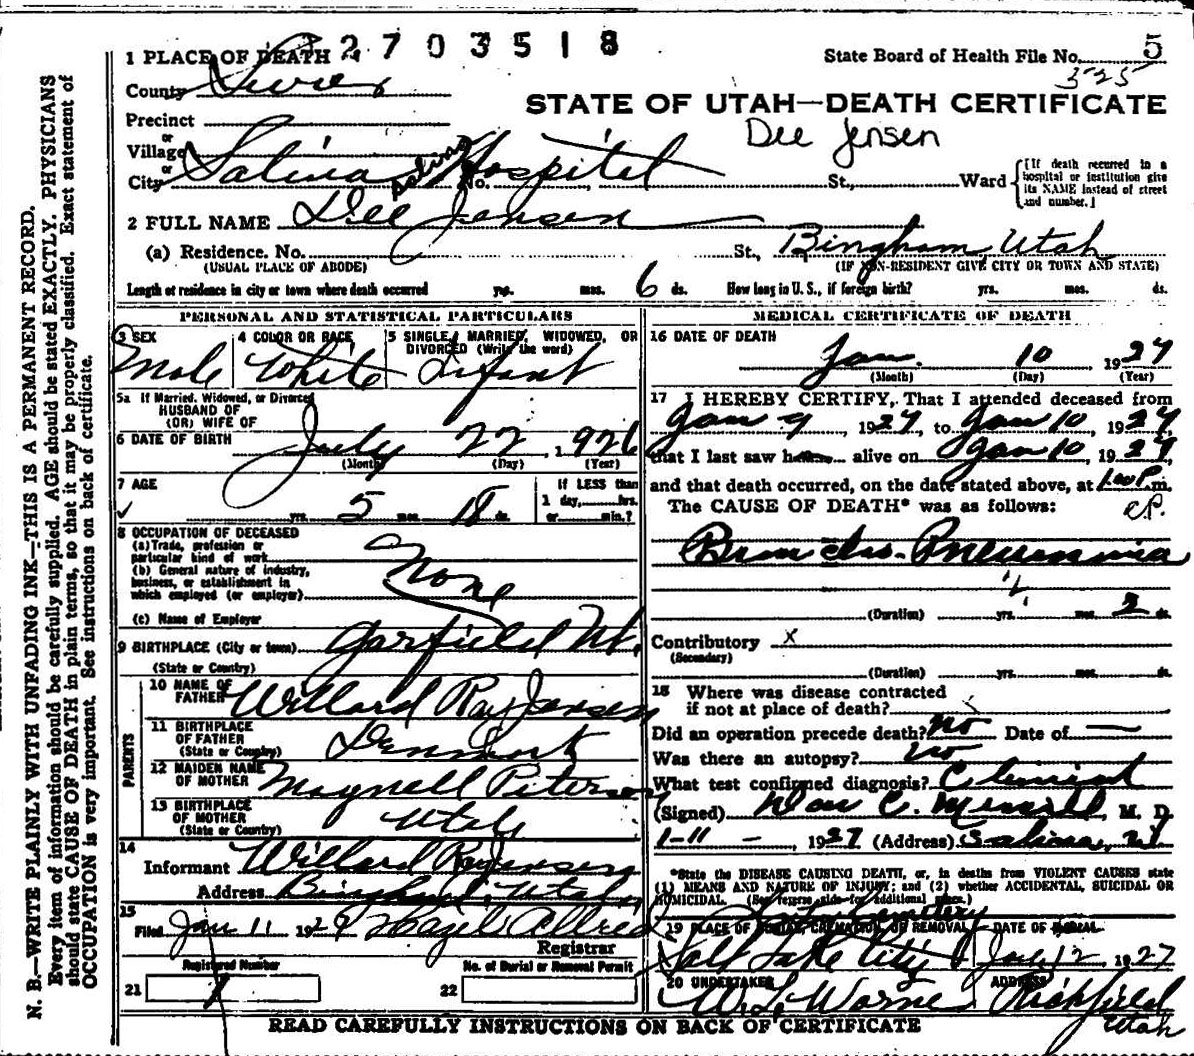 2703518
1 PLACE OF DEATH
State Board of Health File No. 5
325
County Sevier
STATE OF UTAH—DEATH CERTIFICATE
Precinct
Dee Jensen
or
Village
or
City Salina Salina Hospital No. St., Ward
[If death occurred in a hospital or institution give its NAME instead of street and number.]
2 FULL NAME Dee Jensen
(a) Residence. No. St., Bingham, Utah
(USUAL PLACE OF ABODE) (IF NON-RESIDENT GIVE CITY OR TOWN AND STATE)
Length of residence in city or town where death occurred yrs. mos. 6 ds. How long in U. S., if foreign birth? yrs. mos. ds.
PERSONAL AND STATISTICAL PARTICULARS
3 SEX 4 COLOR OR RACE 5 SINGLE, MARRIED, WIDOWED, OR
DIVORCED (Write the word)
Male White Infant
5a If Married, Widowed, or Divorced
HUSBAND OF
(OR) WIFE OF
6 DATE OF BIRTH July 22, 1926
(Month) (Day) (Year)
7 AGE yrs. 5 mos. 18 ds.
If LESS than
1 day, hrs.
or min.?
8 OCCUPATION OF DECEASED
(a) Trade, profession or
particular kind of work
None
(b) General nature of industry,
business, or establishment in
which employed (or employer)
(c) Name of Employer
9 BIRTHPLACE (City or town) Garfield Ut.
(State or Country)
PARENTS
10 NAME OF
FATHER Willard Ray Jensen
11 BIRTHPLACE
OF FATHER
(State or Country) Denmark
12 MAIDEN NAME
OF MOTHER Maynell Peterson
13 BIRTHPLACE
OF MOTHER
(State or Country) Utah
14
Informant Willard Ray Jensen
Address Bingham, Utah
15
Filed Jan 11 1927 Hazel Allred
Registrar
Registered Number No. of Burial or Removal Permit
21 1 22
MEDICAL CERTIFICATE OF DEATH
16 DATE OF DEATH
Jan. 10 1927
(Month) (Day) (Year)
17 I HEREBY CERTIFY, That I attended deceased from
Jan 9, 1927, to Jan 10, 1927,
that I last saw h alive on Jan 10, 1927,
and that death occurred, on the date stated above, at 1:00 P. m.
The CAUSE OF DEATH* was as follows:
Broncho-Pneumonia
(Duration) yrs. mos. 2 ds.
Contributory x
(Secondary)
(Duration) yrs. mos. ds.
18 Where was disease contracted
if not at place of death?
Did an operation precede death? no Date of —
Was there an autopsy? no
What test confirmed diagnosis? Clinical
(Signed) C. M. D.
1-11- 1927 (Address) Salina, Ut
*State the DISEASE CAUSING DEATH, or, in deaths from VIOLENT CAUSES state
(1) MEANS AND NATURE OF INJURY; and (2) whether ACCIDENTAL, SUICIDAL OR
HOMICIDAL. (See reverse side for additional space.)
City Cemetery
19 PLACE OF BURIAL, CREMATION, OR REMOVAL DATE OF BURIAL
Salt Lake City Jan, 12, 1927
20 UNDERTAKER ADDRESS
W. L. Warne Richfield
Utah
READ CAREFULLY INSTRUCTIONS ON BACK OF CERTIFICATE
N. B.—WRITE PLAINLY WITH UNFADING INK—THIS IS A PERMANENT RECORD.
Every item of information should be carefully supplied. AGE should be stated EXACTLY. PHYSICIANS
should state CAUSE OF DEATH in plain terms, so that it may be properly classified. Exact statement of
OCCUPATION is very important. See instructions on back of certificate.